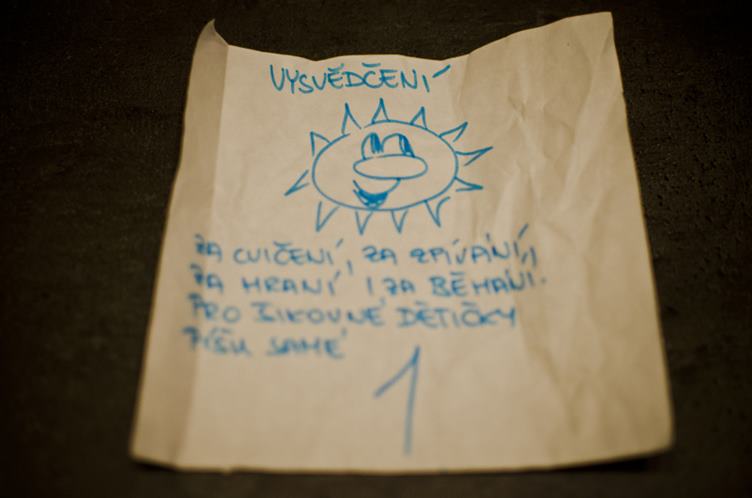 VYSVĚDČENÍ
ZA CVIČENÍ, ZA ZPÍVÁNÍ,
ZA HRANÍ I ZA BĚHÁNÍ.
PRO ŠIKOVNÉ DĚTIČKY
PÍŠU SAMÉ
1